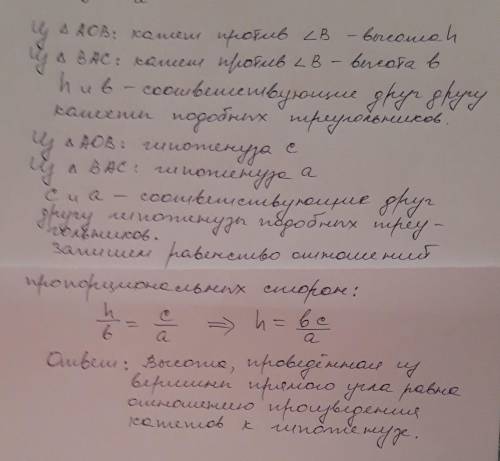 Из △ AOB: катет против ∠B – высота h
Из △ BAC: катет против ∠B – высота b
h и b – соответствующие друг другу
катеты подобных треугольников.
Из △ AOB: гипотенуза c
Из △ BAC: гипотенуза a
c и a – соответствующие друг
другу гипотенузы подобных треу-
гольников.
Запишем равенство отношений
пропорциональных сторон:
h/b = c/a ⟹ h = bc/a
Ответ: Высота, проведённая из
вершины прямого угла равна
отношению произведения
катетов к гипотенузе.